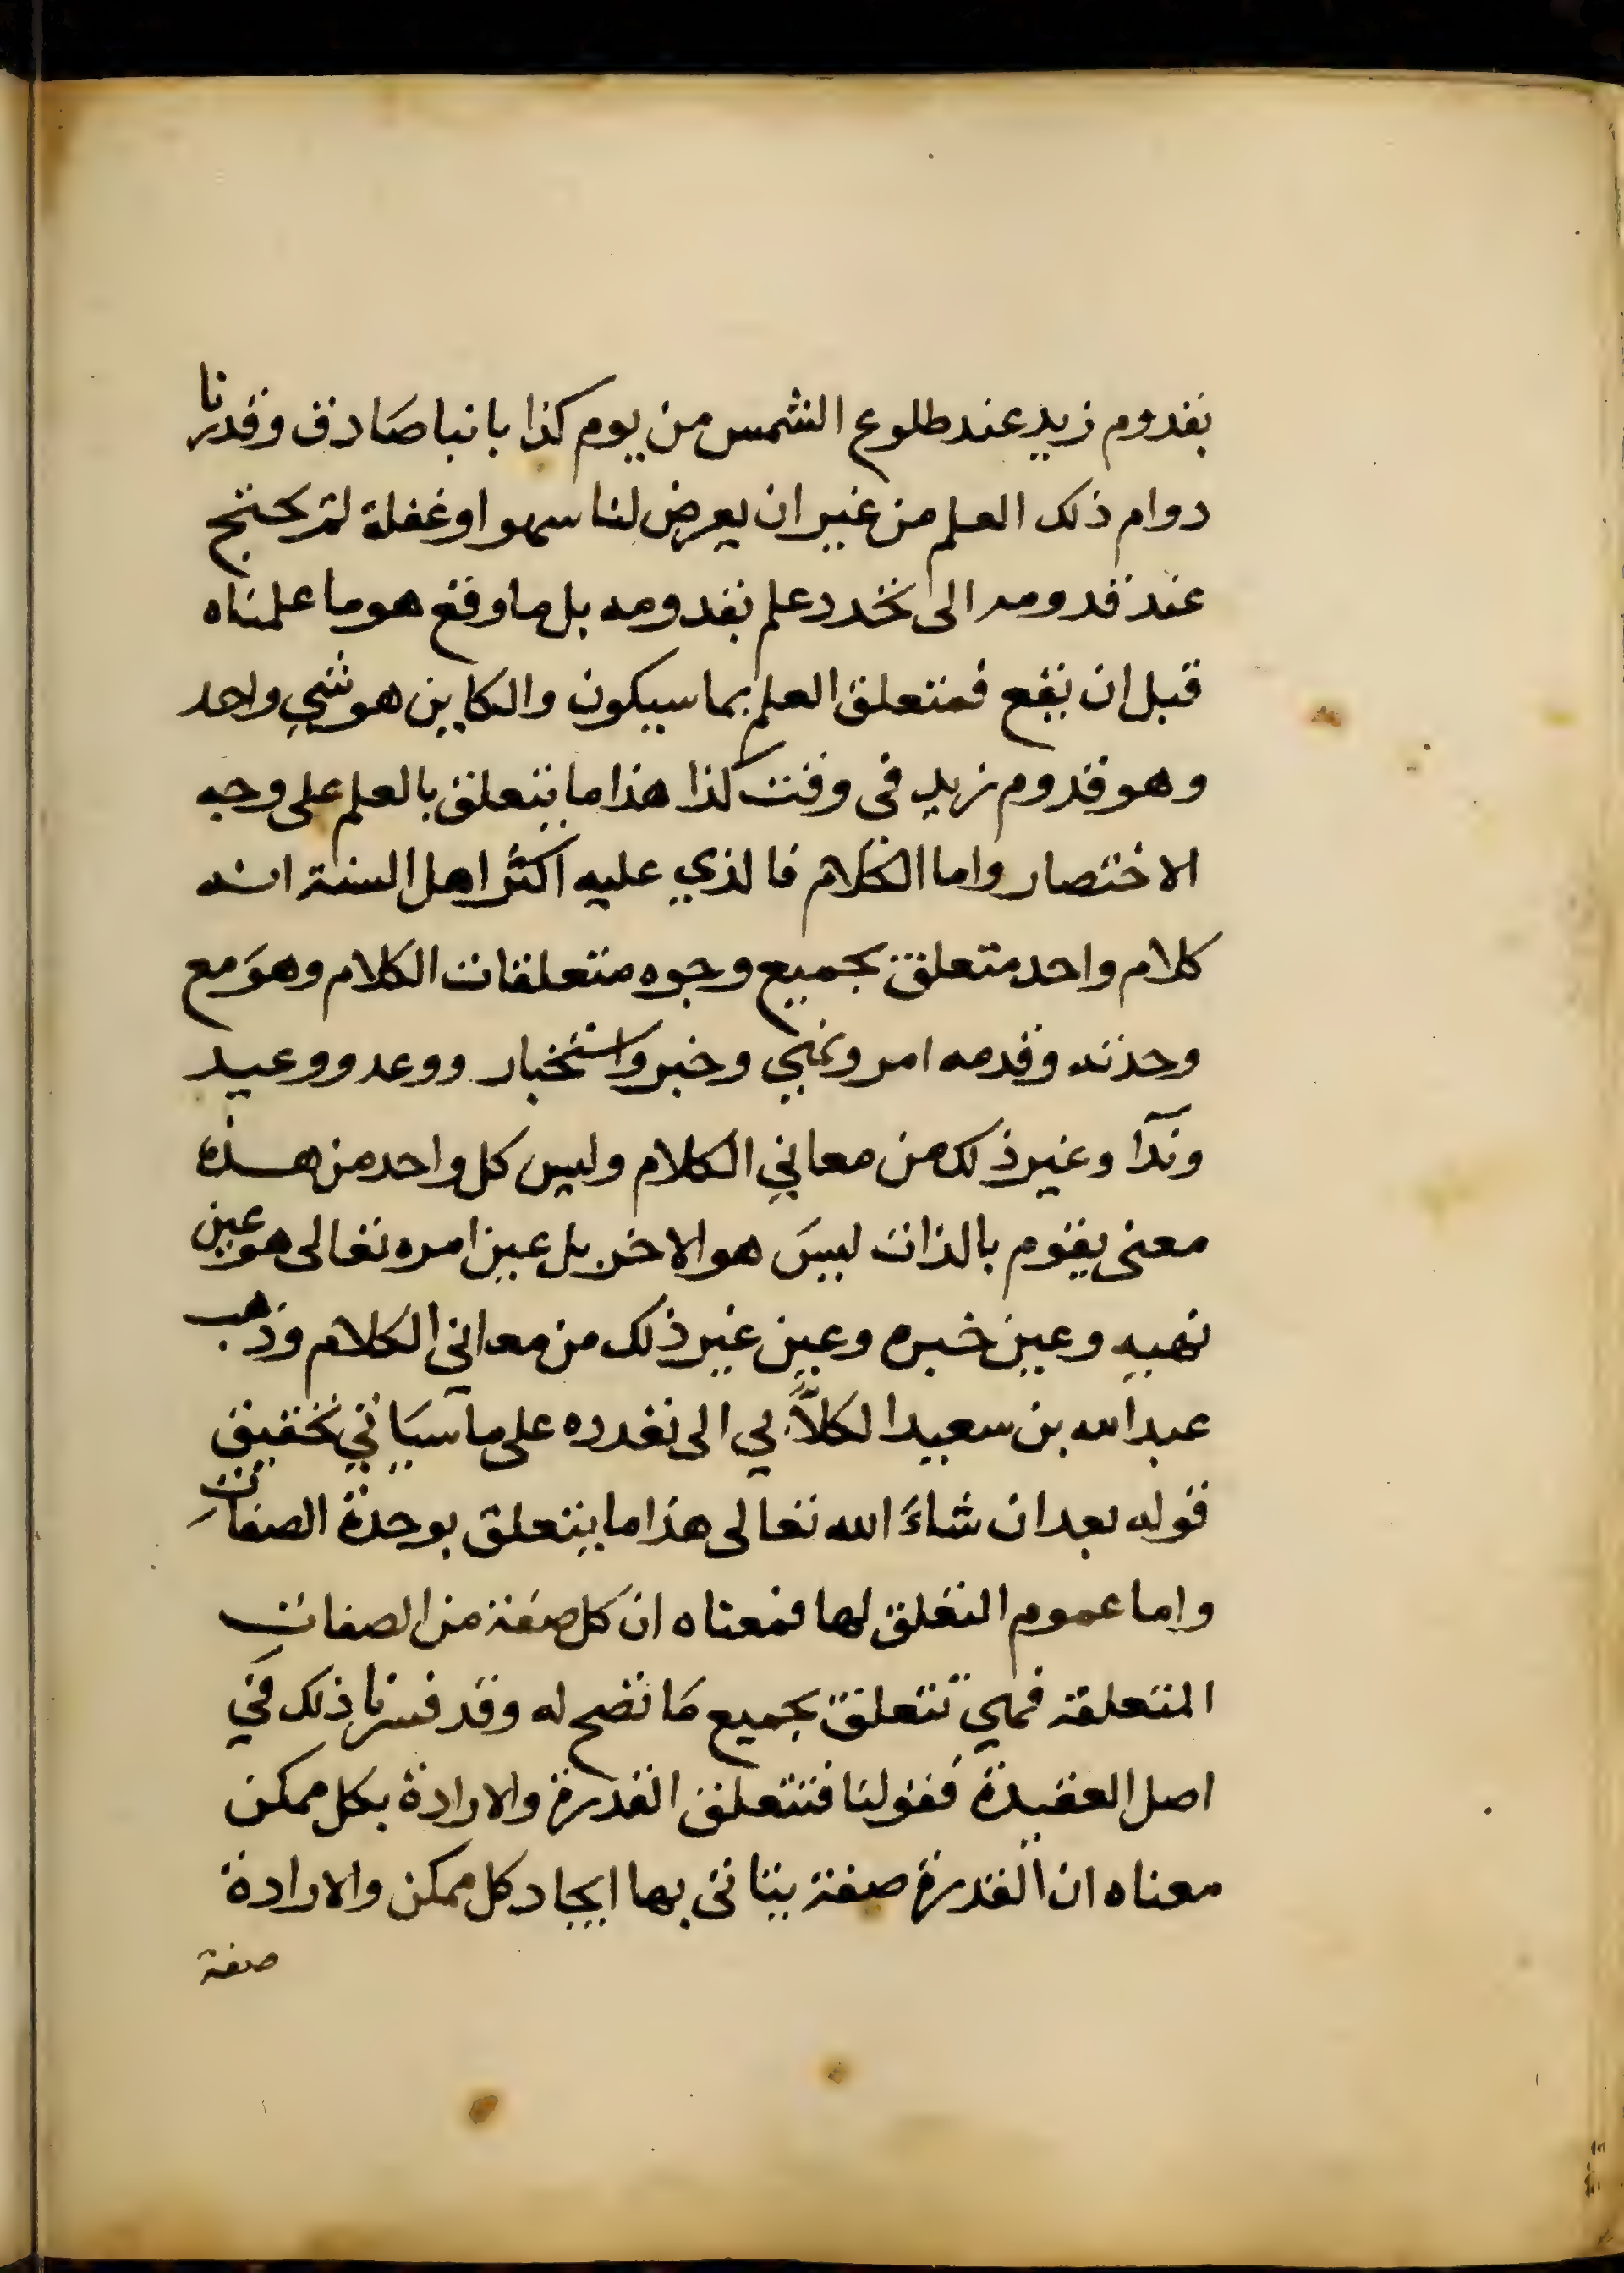 بقدوم زيد عند طلوع الشمس من يوم كذا بانبا صَادق وقدرنا
دوام ذلك العلم من غير ان يعرض لنا سهو او غفلة لم يحتج
عند قدومه الى تجدد علم بقدومه بل ما وقع هو ما علمناه
قبل ان يقع فمتعلق العلم بما سيكون والكاين هو شي واحد
وهو قدوم زيد في وقت كذا هذا ما يتعلق بالعلم على وجه
الاختصار واما الكلام فالذي عليه اكثر اهل السنة انه
كلام واحد متعلق بجميع وجوه متعلقات الكلام وهوَ مع
وحدته وقدمه امر ونهي وخبر واستخبار ووعد ووعيد
وندآ وغير ذلك من معاني الكلام وليس كل واحد من هذه
معنى يقوم بالذات ليسَ هو الاخر بل عين امره تعالى هو عين
نهيه وعين خبره وعين غير ذلك من معاني الكلام وذهب
عبد الله بن سعيد الكلاَّبي الى تعدده على ما سيَاتي تحقيق
قوله بعد ان شاءَ الله تعالى هذا ما يتعلق بوحدة الصفات
واما عموم التعلق لها فمعناه ان كل صفة من الصفات
المتعلقة فهي تتعلق بجميع مَا تصح له وقد فسرنا ذلك في
اصل العقيدة فقولنا فتتعلق القدرة والارادة بكل ممكن
معناه ان القدرة صفة يتاتى بها ايجاد كل ممكن والارادة
صفة